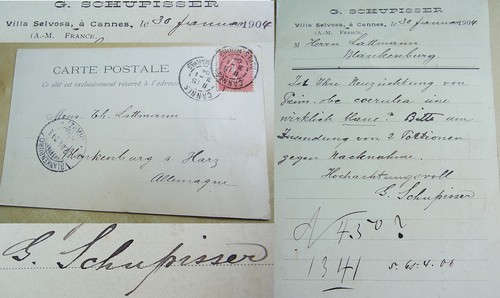 G. SCHUPISSER
Villa Selvosa, à Cannes, le 30 Januar 1904
(A.-M. FRANCE.)
CARTE POSTALE
Ce côté est exclusivement réservé à l'adresse
CANNES
Mons. Th. Lattmann
Blankenburg a/ Harz
Allemagne
G. Schupisser
G. SCHUPISSER
Villa Selvosa, à Cannes, le 30 Januar 1904
(A.-M. FRANCE.)
M Herrn Lattmann
Blankenburg
Ist Ihre Neuzüchtung von
Prim. obc. coerulea eine
wirklich blaue? Bitte um
Zusendung von 2 Portionen
gegen Nachnahme.
Hochachtungsvoll
G. Schupisser
1341